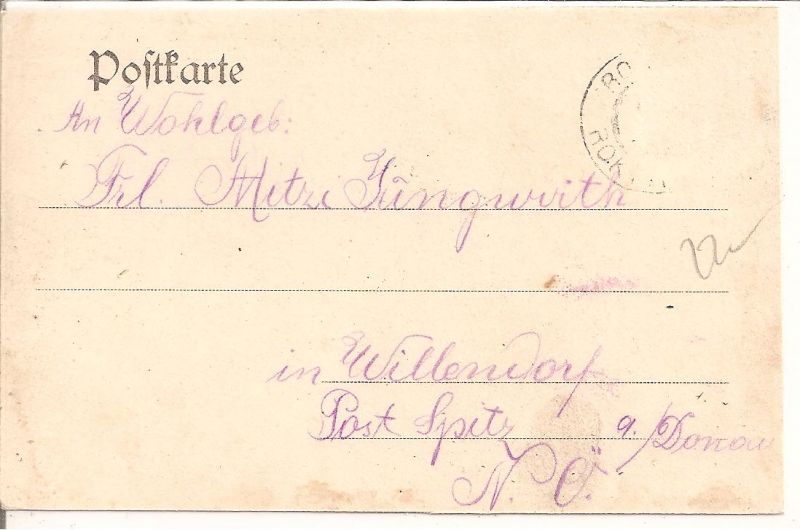 Postkarte
An Wohlgeb:
Frl. Mitzi Jungwirth
in Willendorf
Post Spitz a./Donau
N. Ö.